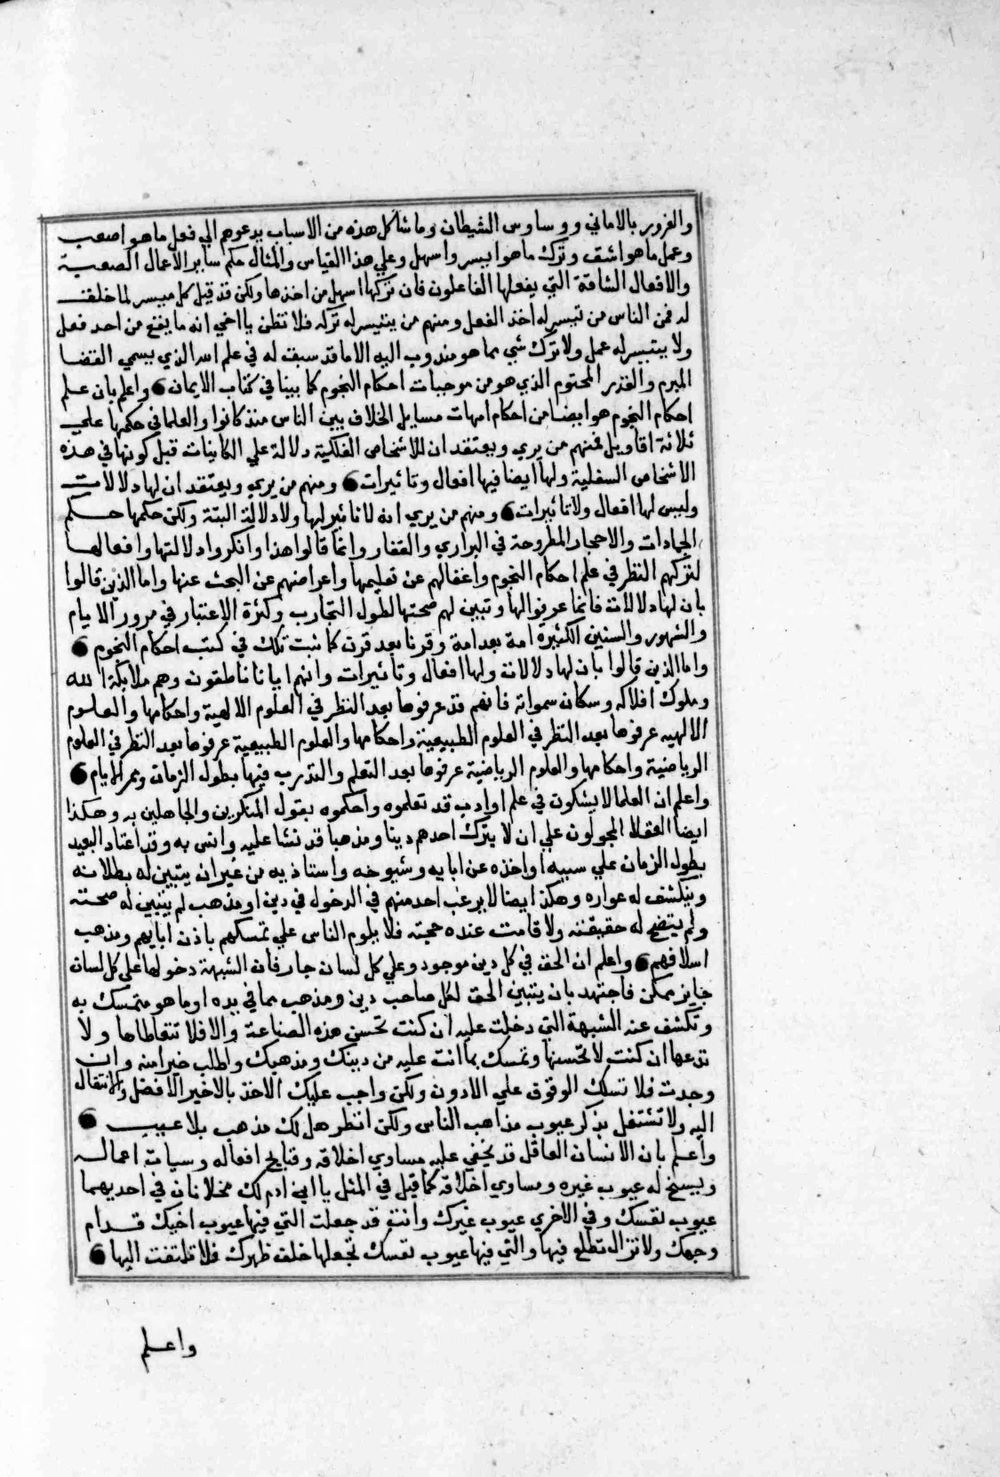 والغرور بالاماني ووساوس الشيطان وما شاكل هذه من الاسباب يدعوهم الي فعل ما هو اصعب
وعمل ما هو اشق وترك ما هو ايسر واسهل وعلي هذا القياس والمثال حكم ساير الاعمال الصعبة
والافعال الشاقة التي يفعلها الفاعلون فان تركها اسهل من اخذها ولكن قد قيل كل ميسر لما خلقت
له فمن الناس من تيسر له اخذ الفعل ومنهم من يتيسر له تركه فلا تظن يا اخي انه ما يقع من احد فعل
ولا يتيسر له عمل ولا ترك شي مما هو مندوب اليه الا ما قد سبق له في علم الله الذي يسمي القضا
المبرم والقدر المحتوم الذي هو من موجبات احكام النجوم كما بينا في كتاب الايمان واعلم بان علم
احكام النجوم هو ايضا من احكام امهات مسايل الخلاف بين الناس منذ كانوا والعلما في حكمها علي
ثلاثة اقاويل فمنهم من يري ويعتقد ان للاشخاص الفلكية دلالة علي الكاينات قبل كونها في هذه
الاشخاص السفلية ولها ايضا فيها افعال وتاثيرات ومنهم من يري ويعتقد ان لها دلالات
وليس لها افعال ولا تاثيرات ومنهم من يري انه لا تاثير لها ولا دلالة البتة ولكن حكمها حكم
الجمادات والاحجار المطروحة في البراري والقفار وانما قالوا هذا وانكروا دلالتها وافعالها
لتركهم النظر في علم احكام النجوم واغفالهم عن تعليمها واعراضهم عن البحث عنها واما الذين قالوا
بان لها دلالات فانما عرفوا لها وتبين لهم صحتها لطول التجارب وكثرة الاعتبار في مرور الايام
والشهور والسنين الكثيرة امة بعد امة وقرنا بعد قرن كما ثبت تلك في كتب احكام النجوم
واما الذين قالوا بان لها دلالات ولها افعال وتاثيرات وانهم ناطقون وهم ملايكة الله
وملوك افلاكه وسكان سمواته فانهم قد عرفوها بعد النظر في العلوم الالهية واحكامها والعلوم
الالهيه عرفوها بعد النظر في العلوم الطبيعية واحكامها والعلوم الطبيعية عرفوها بعد النظر في العلوم
الرياضية واحكامها والعلوم الرياضية عرفوها بعد التعلم والتدرب فيها بطول الزمان وممر الايام
واعلم ان العلما لا يشكون في علم او ادب قد تعلموه واحكموه بقول المنكرين والجاهلين به وهكذا
ايضا العقلا المجبولون علي ان لا يترك احدهم دينا ومذهبا قد نشا عليه وانس به وقد اعتاد البعيد
بطول الزمان علي سببه او اخذه عن ابايه وشيوخه واستاذيه من غير ان يتبين له بطلانه
وينكشف له عواره وهكذا ايضا لا يرغب احد منهم في الدخول في دين او مذهب لم يتبين له صحته
ولم يتضح له حقيقته ولا قامت عنده حجته فلا يلوم الناس علي تمسكهم باذن ابايهم ومذهب
اسلافهم واعلم ان الحق في كل دين موجود وعلي كل لسان جار فان الشبهة دخولها علي كل لسان
جايز ممكن فاجتهد بان يتبين الحق لكل صاحب دين ومذهب مما في يده او ما هو متمسك به
وتكشف عنه الشبهة التي دخلت عليه ان كنت تحسن هذه الصناعة والا فلا تتعاطاها ولا
تدعها ان كنت لا تحسنها وتمسك بما انت عليه من دينك ومذهبك واطلب خيرا منه وان
وجدت فلا تسك الوقوف علي الادون ولكن واجب عليك الاخذ بالاخير الافضل والانتقال
اليه ولا تشتغل بذكر عيوب مذاهب الناس ولكن انظر هل لك مذهب بلا عيب
واعلم بان الانسان العاقل قد يخفي عليه مساوي اخلاقه وقبايح افعاله وسيات اعماله
ويسنح له عيوب غيره ومساوي اخلاقه كما قيل في المثل يا ابن ادم لك مخلاتان في احديهما
عيوب نفسك وفي الاخري عيوب غيرك وانت قد جعلت التي فيها عيوب اخيك قدام
وجهك ولا تزال تطلع فيها والتي فيها عيوب نفسك تجعلها خلف ظهرك فلا تلتفت اليها
واعلم